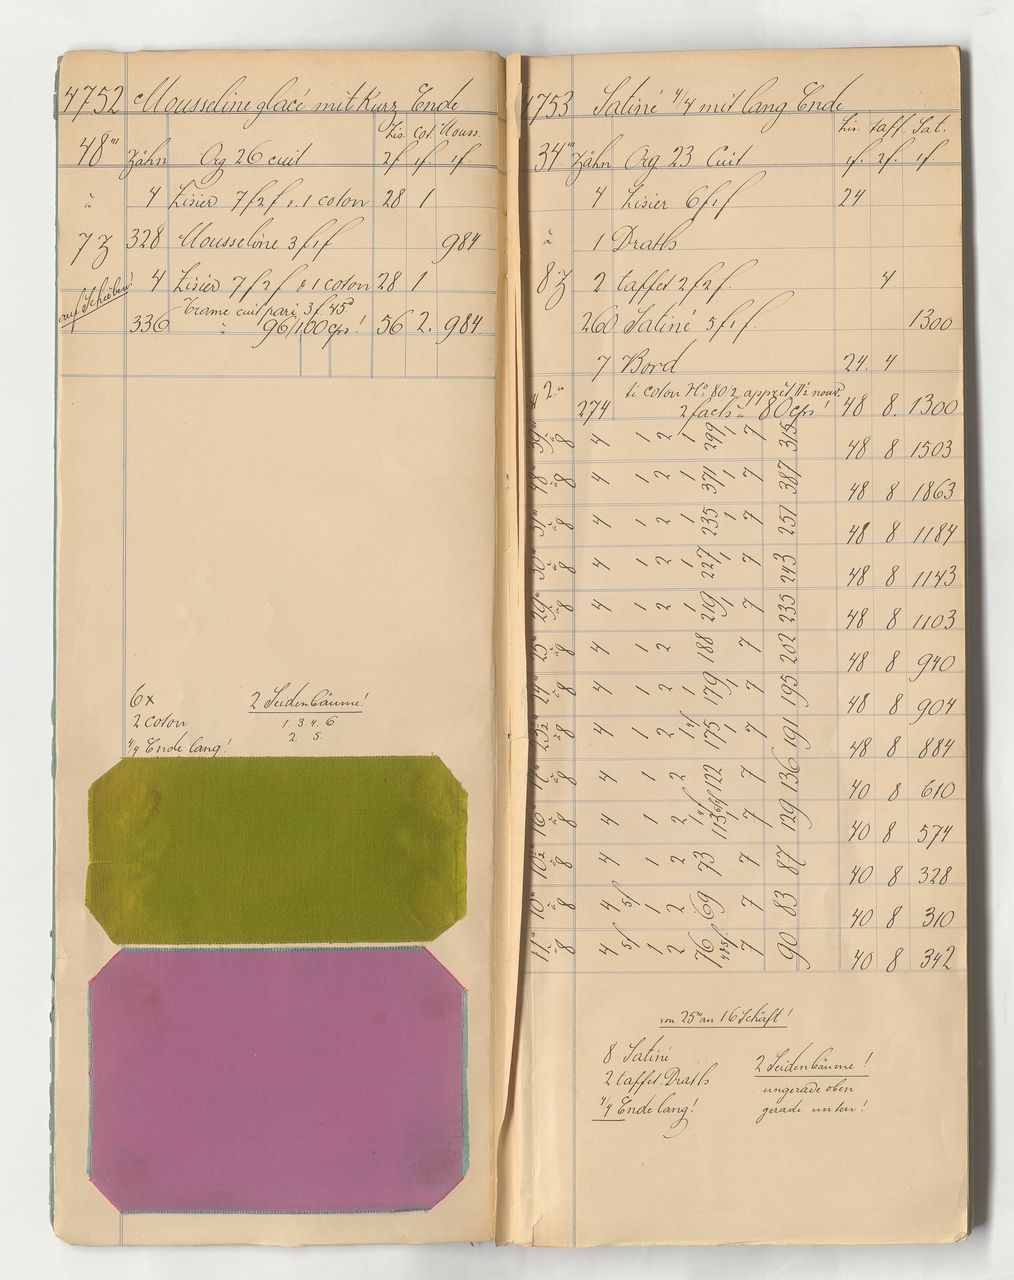 4752 Mousseline glacé mit Kurz Ende
Lis. Cot. Mouss.
48''' Zähn Org 26 cuit 2f. 1f. 1f.
à 4 Lisier 7 f 2 f u. 1 coton 28 1
7 Z 328 Mousseline 3 f 1 f 984
4 Lisier 7 f 2 f u 1 coton 28 1
auf Schieben!
Trame cuit pari 3 f. 45d
336 à 96/100 cps! 56 2. 984
6x
2 coton
4/4 Ende lang!
2 Seidenbäume!
1. 3. 4. 6
2. 5.
4753 Satiné 4/4 mit lang Ende
Lis. taft. Sat.
34''' Zähn Org 23 Cuit 1f. 2f. 1f.
4 Lisier 6 f 1 f 24
à 1 Drath
8 Z 2 taffet 2 f 2 f. 4
260 Satiné 5 f 1 f. 1300
7 Bord 24. 4
ti coton No. 80/2 apprêt
274 2 fach à 80 cps! 48 8. 1300
39''' à 8 4 1 2 1 299 1 7 315 48 8 1503
48''' à 8 4 1 2 1 371 1 7 387 48 8 1863
31''' à 8 4 1 2 1 235 1 7 251 48 8 1184
30''' à 8 4 1 2 1 227 1 7 243 48 8 1143
29''' à 8 4 1 2 1 219 1 7 235 48 8 1103
25''' à 8 4 1 2 188 7 202 48 8 940
24''' à 8 4 1 2 1 179 1 7 195 48 8 904
23½ à 8 4 1 2 175 1 7 191 48 8 884
à 8 4 1 2 122 7 136 40 8 610
16''' à 8 4 1 2 113 7 129 40 8 574
10½ à 8 4 1 2 73 7 87 40 8 328
10''' à 8 4 5f 1 2 69 7 83 40 8 310
11''' à 8 4 5f 1 2 76 7 90 40 8 342
von 25''' an 16 Schäft!
8 Satiné
2 taffet, Drath
4/4 Ende lang!
2 Seidenbäume!
ungerade oben
gerade unten!